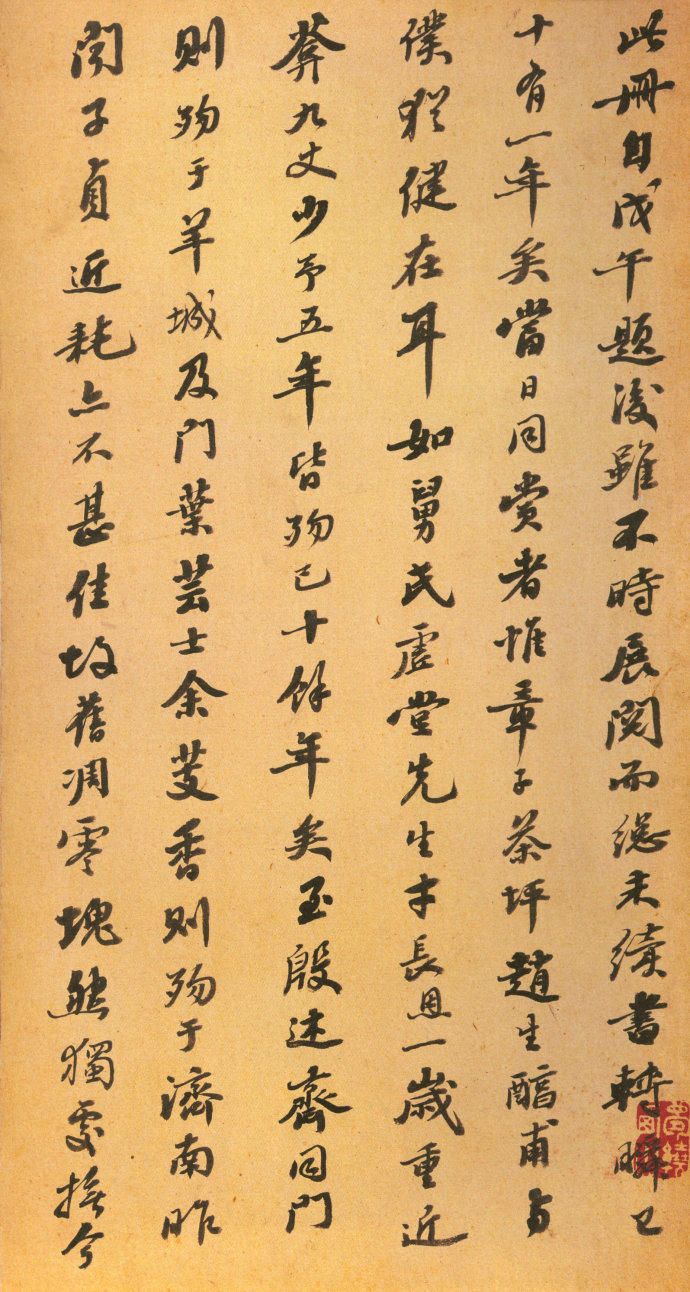 此冊自戊午題後雖不時展閱而總未續書轉瞬已
十有一年矣當日同賞者惟章子茶坪趙生醕甫與
僕猶健在耳如舅氏虛堂先生才長思一歲重近
莽九丈少予五年皆歿已十餘年矣至殷述齋同門
則歿于羊城及門葉芸士余芰香則歿于濟南昨
聞子貞近耗亦不甚佳故舊凋零塊然獨處撫今